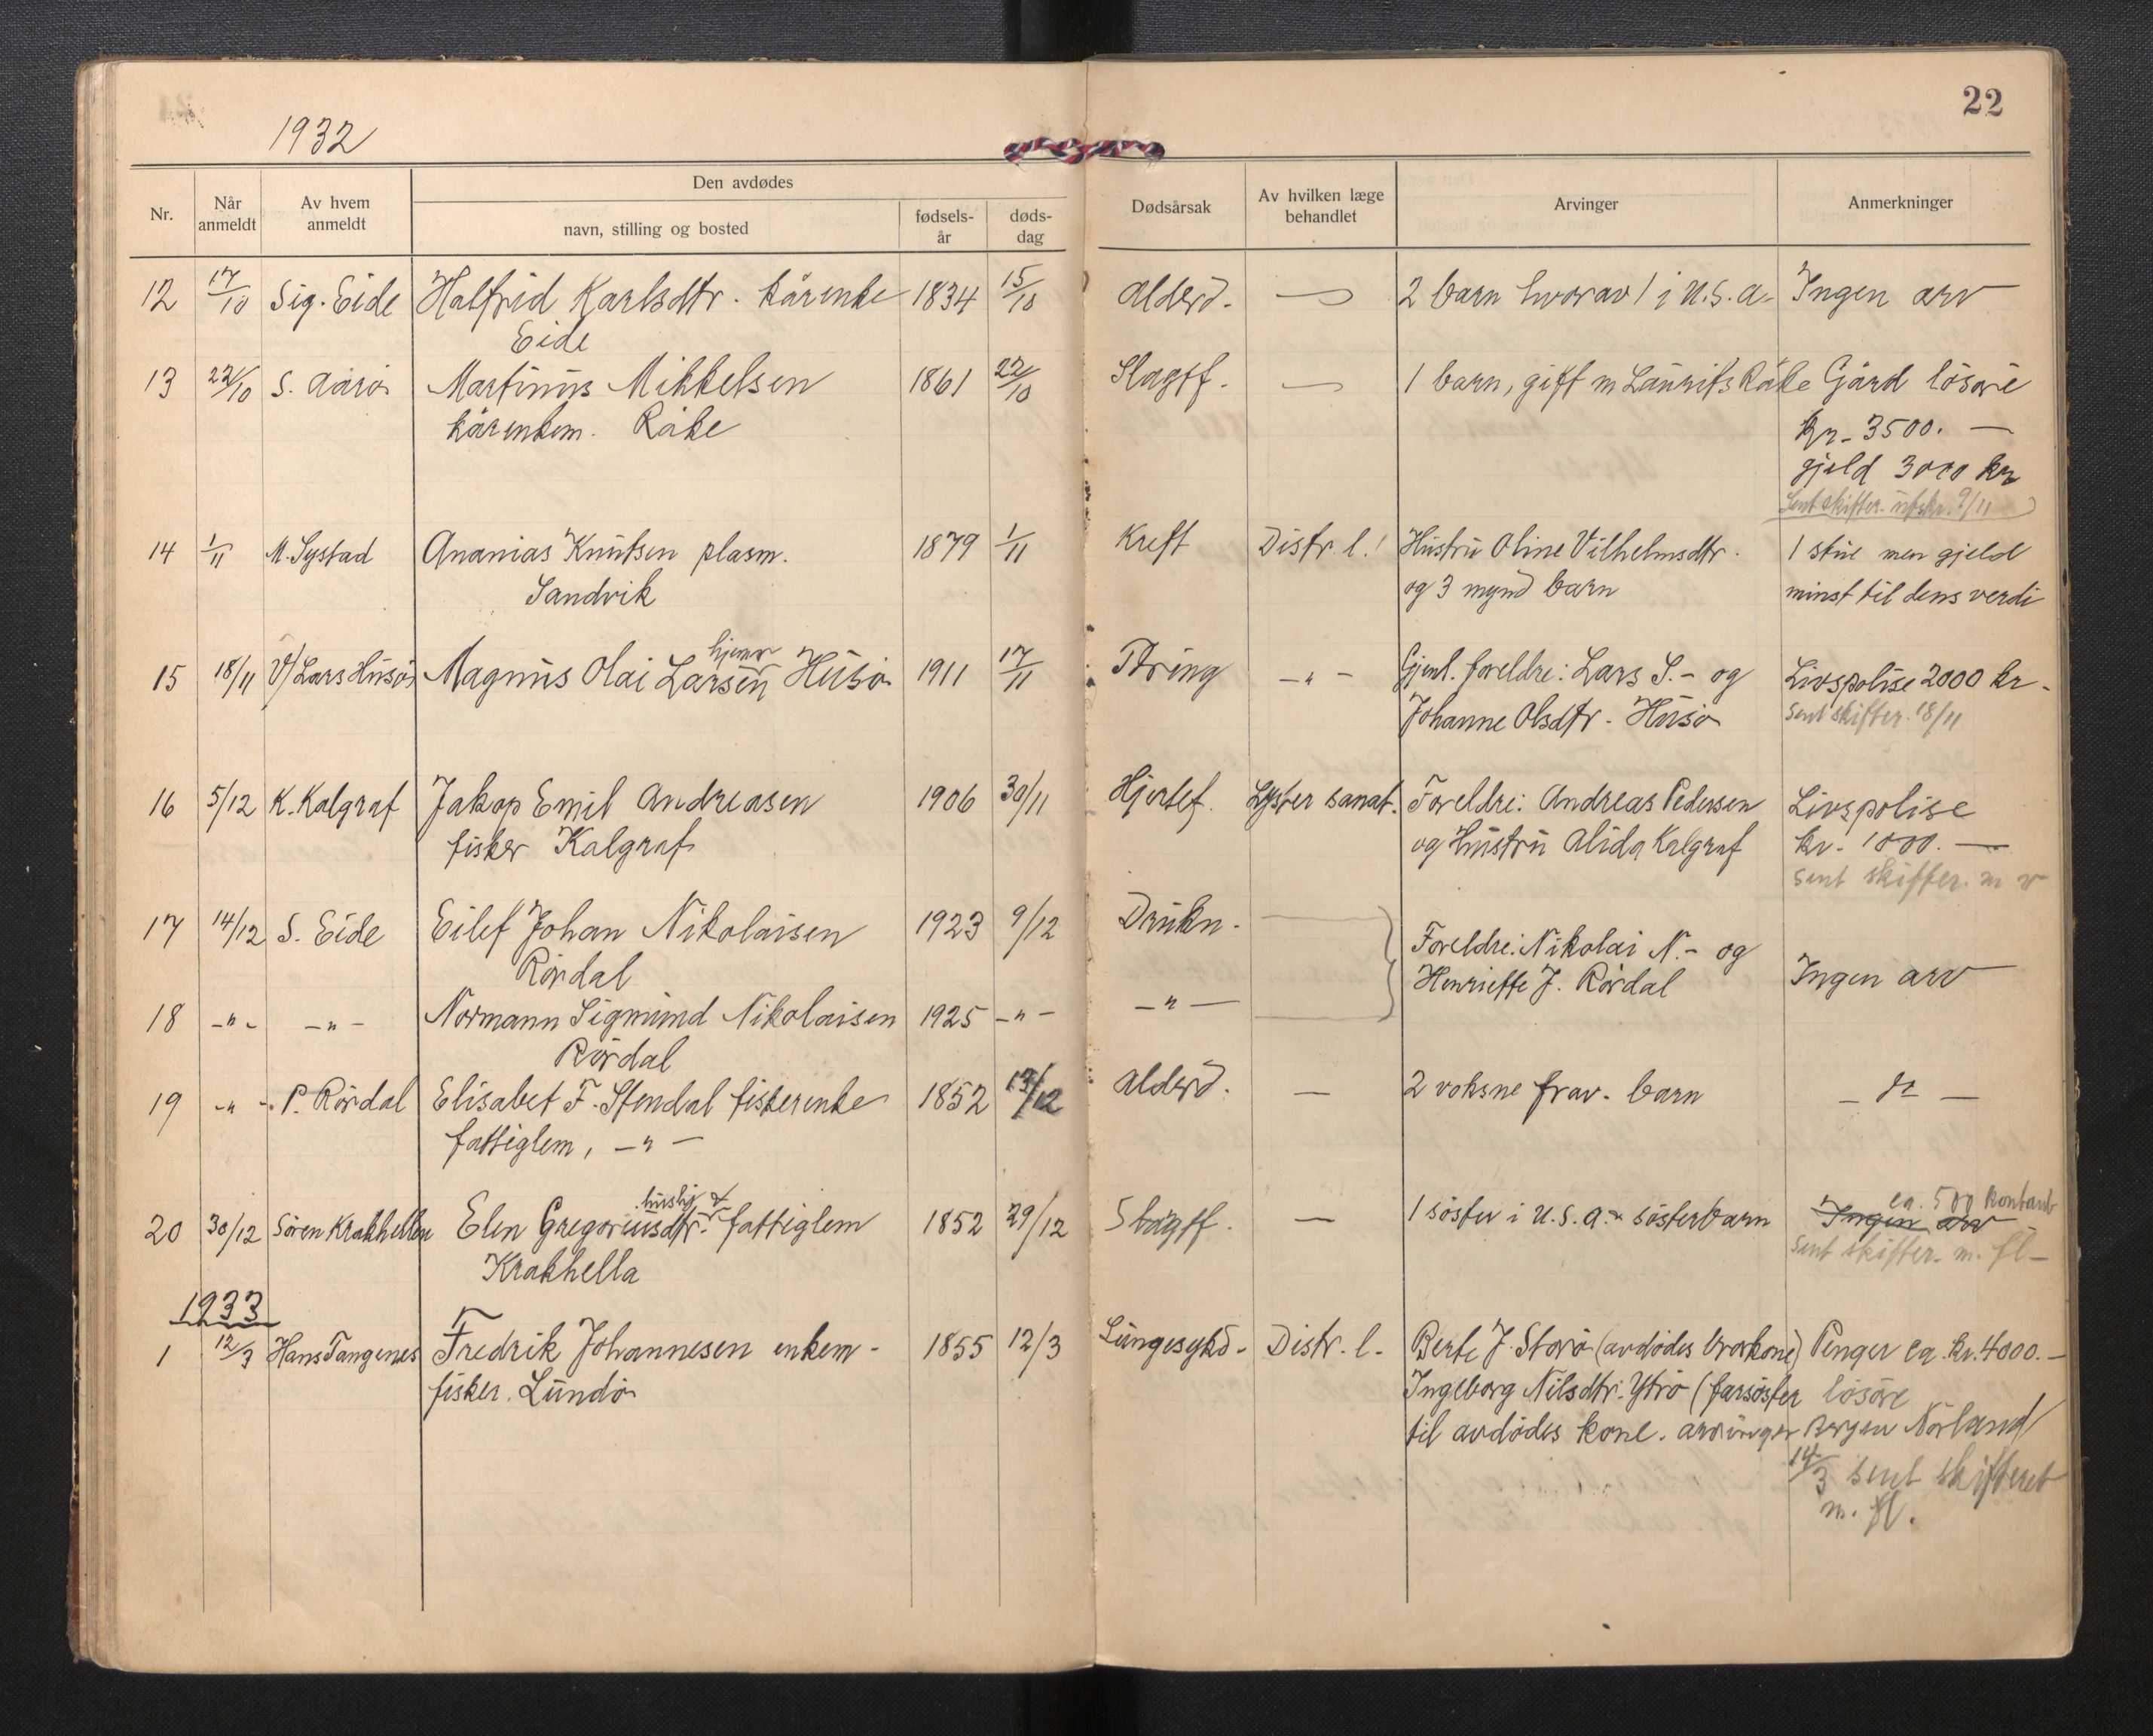 22
1932
Nr.
Når anmeldt
Av hvem anmeldt
Den avdødes
navn, stilling og bosted
fødsels-år
døds-dag
Dødsårsak
Av hvilken læge behandlet
Arvinger
Anmerkninger
12 17/10 Sig. Eide Halfrid Karlsdtr. kårenke 1834 15/10 Alderd. — 2 barn hvorav 1 i U.S.A. Ingen arv
Eide
13 22/10 S. Aarø Martinus Mikkelsen 1861 22/10 Slagtf. — 1 barn, gift m Laurits Råke Gård løsøre
kårenkem. Råke kr. 3500. —
gjeld 3000 kr
Sent skifter. utskr. 9/11
14 1/11 M. Systad Ananias Knutsen plasm. 1879 1/11 Kreft Distr. l. Hustru Oline Vilhelmsdtr. 1 stue men gjeld
Sandvik og 3 mynd barn minst til dens verdi
hjemv
15 18/11 V/ Lars Husø Magnus Olai Larsen Husø 1911 17/11 Tæring —"— Gjenl. foreldre: Lars S.- og Livspolise 2000 kr.
Johanne Olsdtr. Husø Sent skifter. 18/11
16 5/12 K. Kalgraf Jakop Emil Andreasen 1906 30/11 Hjertef. Lyster sanat. Foreldre: Andreas Pedersen Livspolise
fisker Kalgraf og Hustru Alida Kalgraf kr. 1000. —
Sent skifter. m
17 14/12 S. Eide Eilef Johan Nikolaisen 1923 9/12 Drukn. — Foreldre: Nikolai N.- og
Rørdal Henriette J. Rørdal Ingen arv
18 —"— —"— Normann Sigmund Nikolaisen 1925 —"— —"— —
Rørdal
19 —"— P. Rørdal Elisabet F. Stendal fiskerenke 1852 13/12 Alderd. — 2 voksne frav. barn —"—
fattiglem, —"—
ca. 500 kontant
20 30/12 Søren Krakhellen Elen Gregoriusdtr. fattiglem 1852 29/12 Slagtf. — 1 søster i U.S.A. søsterbarn Ingen arv
Krakhella Sent skifter. m. fl —
1933
1 12/3 Hans Tangenes Fredrik Johannesen enkem - 1855 12/3 Lungesykd. Distr. l. Berte J. Storø (avdødes brorkone) Penger ca. kr. 4000. —
fisker. Lundø Ingeborg Nilsdtr. Ytrø (farsøster løsøre
til avdødes kone. arvinger Bergen Norland
14/3 sent skifteret
m. fl.